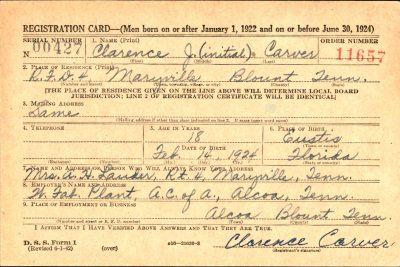 REGISTRATION CARD—(Men born on or after January 1, 1922 and on or before June 30, 1924)
SERIAL NUMBER 1. NAME (Print) ORDER NUMBER
N 00427 Clarence J. (initial) Carver 11657
(First) (Middle) (Last)
2. PLACE OF RESIDENCE (Print)
R.F.D. 4 Maryville Blount Tenn.
[THE PLACE OF RESIDENCE GIVEN ON THE LINE ABOVE WILL DETERMINE LOCAL BOARD
JURISDICTION; LINE 2 OF REGISTRATION CERTIFICATE WILL BE IDENTICAL]
3. MAILING ADDRESS
Same
4. TELEPHONE 5. AGE IN YEARS 6. PLACE OF BIRTH
18 Eustis
DATE OF BIRTH
Feb. 14, 1924 Florida
7. NAME AND ADDRESS OF PERSON WHO WILL ALWAYS KNOW YOUR ADDRESS
Mrs. Rt. 4, Maryville, Tenn.
8. EMPLOYER'S NAME AND ADDRESS
W. Fab. Plant, A.C. of A., Alcoa, Tenn.
9. PLACE OF EMPLOYMENT OR BUSINESS
Alcoa Blount Tenn.
I AFFIRM THAT I HAVE VERIFIED ABOVE ANSWERS AND THAT THEY ARE TRUE.
D. S. S. Form 1 (over) Clarence Carver
(Registrant's signature)